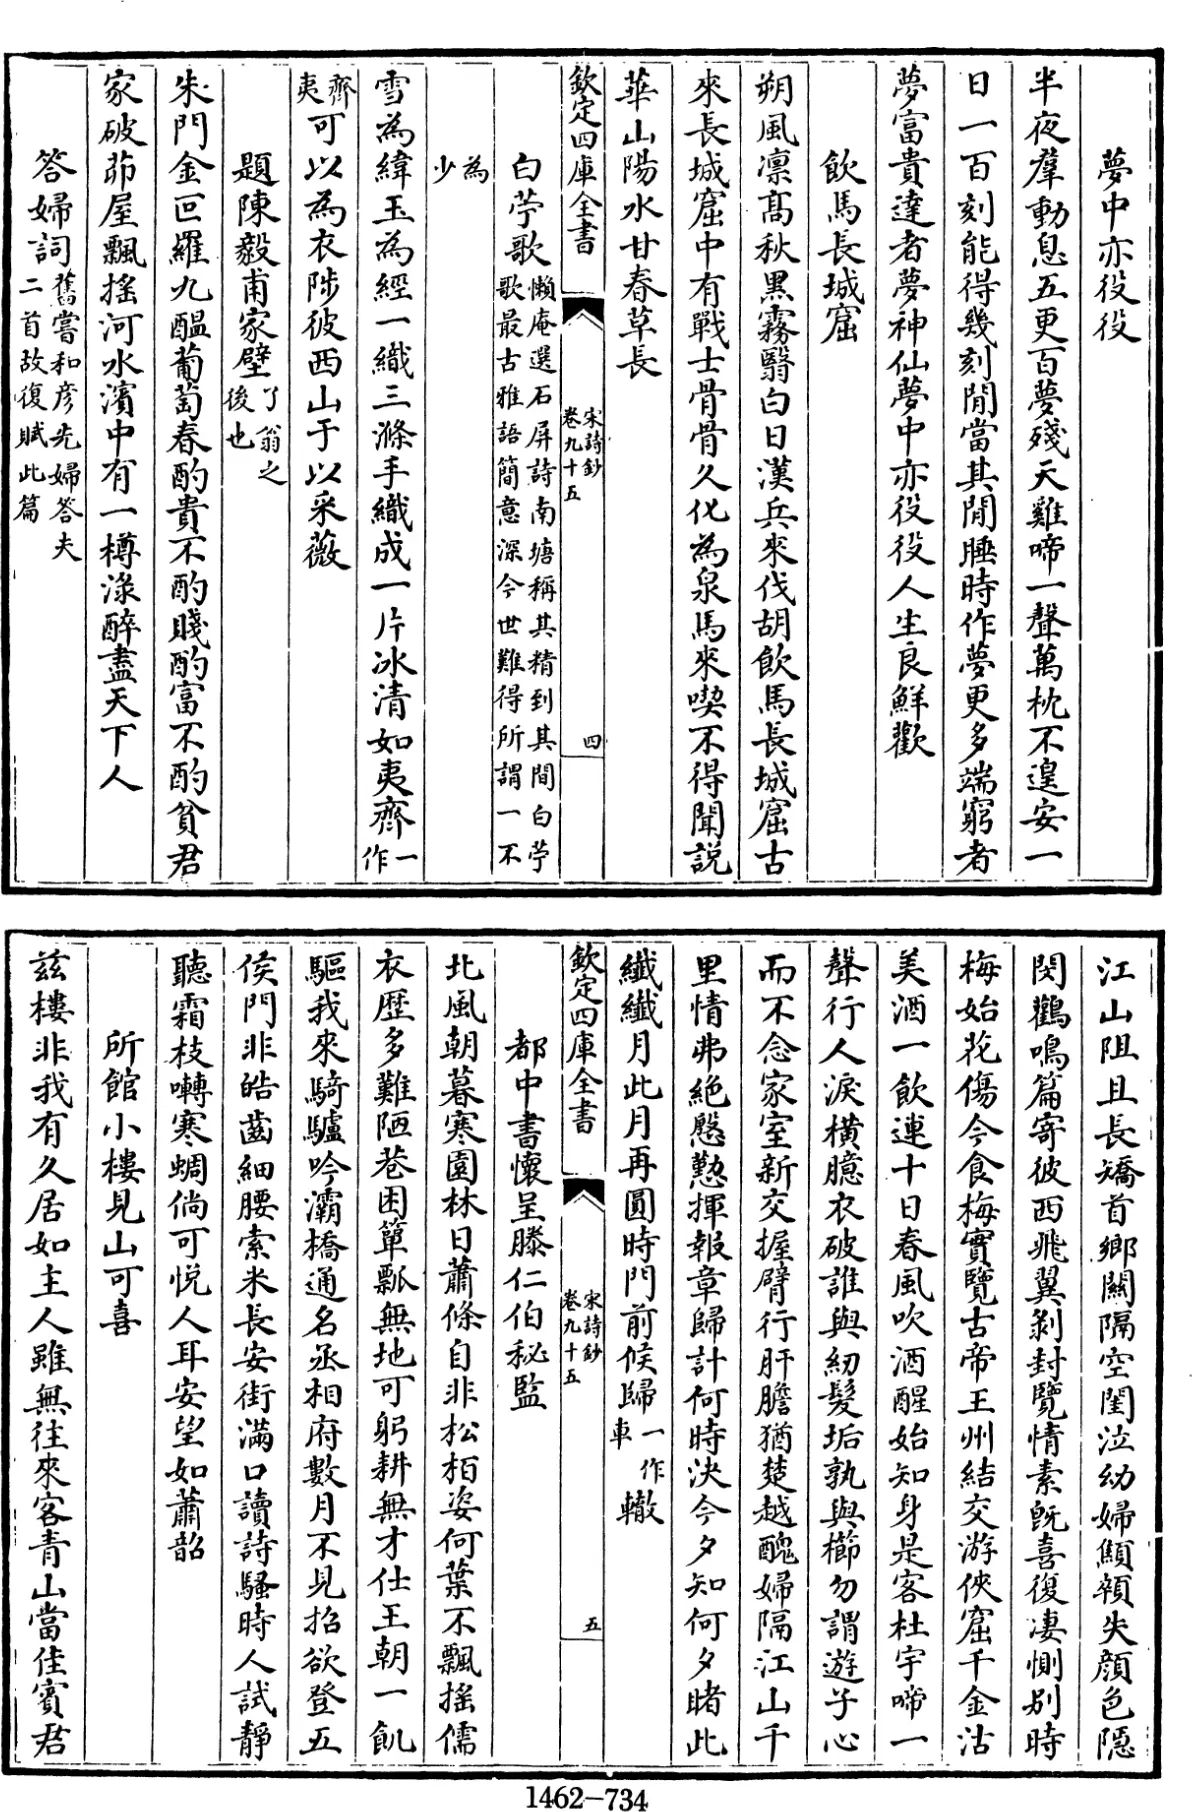 夢中亦役役
半夜羣動息五更百夢殘天雞啼一聲萬枕不遑安一
日一百刻能得幾刻閒當其閒睡時作夢更多端窮者
夢富貴達者夢神仙夢中亦役役人生良鮮歡
飲馬長城窟
朔風凛髙秋黒霧翳白日漢兵來伐胡飲馬長城窟古
來長城窟中有戰士骨骨久化為泉馬來喫不得聞説
華山陽水甘春草長
欽定四庫全書
宋詩鈔
卷九十五
四
白苧歌
懶庵選石屏詩南塘稱其精到其間白苧
歌最古雅語簡意深今世難得所謂一不
為
少
雪為緯玉為經一織三滌手織成一片冰清如夷齊一
作
齊
夷可以為衣陟彼西山于以采薇
題陳毅甫家壁
了翁之
後也
朱門金叵羅九醖葡萄春酌貴不酌賤酌富不酌貧君
家破茆屋飄搖河水濱中有一樽渌醉盡天下人
答婦詞
舊嘗和彦先婦答夫
二首故復賦此篇
江山阻且長矯首鄉關隔空閨泣幼婦顦顇失顔色隠
閔鸛鳴篇寄彼西飛翼剝封覽情素旣喜復凄惻别時
梅始花傷今食梅實覽古帝王州結交游俠窟千金沽
美酒一飲連十日春風吹酒醒始知身是客杜宇啼一
聲行人淚橫臆衣破誰與紉髮垢孰與櫛勿謂遊子心
而不念家室新交握臂行肝膽猶楚越醜婦隔江山千
里情弗絶慇懃揮報章歸計何時決今夕知何夕睹此
纖纖月此月再圓時門前候歸
一作
車
轍
欽定四庫全書
宋詩鈔
卷九十五
五
都中書懷呈滕仁伯秘監
北風朝暮寒園林日蕭條自非松栢姿何葉不飄搖儒
衣歴多難陋巷困簞瓢無地可躬耕無才仕王朝一飢
驅我來騎驢吟灞橋通名丞相府數月不見招欲登五
侯門非皓齒細腰索米長安街滿口讀詩騷時人試靜
聽霜枝囀寒蜩倘可悦人耳安望如蕭韶
所館小樓見山可喜
兹樓非我有久居如主人雖無往來客青山當佳賓君
1462-734